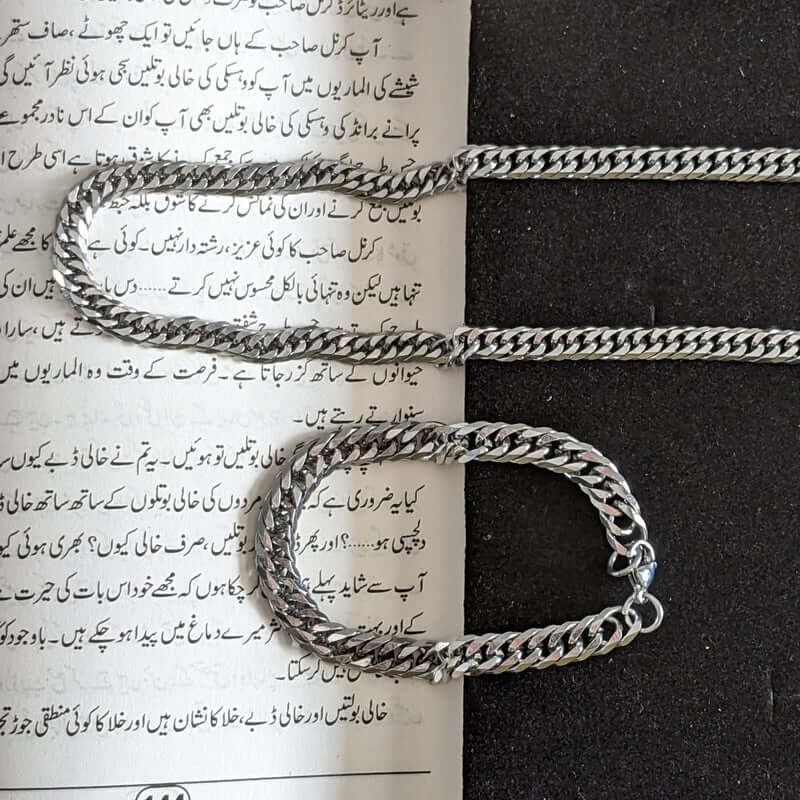 ہے اور ریٹائرڈ کرنل صاحب
آپ کرنل صاحب کے ہاں جائیں تو ایک چھوٹے، صاف ستھر
شیشے کی الماریوں میں آپ کو وہسکی کی خالی بوتلیں سجی ہوئی نظر آئیں گی
پرانے برانڈ کی وہسکی کی خالی بوتلیں بھی آپ کو ان کے اس نادر مجموعے
کا شوق ہوتا ہے اسی طرح ا
بوتلیں جمع کرنے اور ان کی نمائش کرنے کا شوق بلکہ خبط
کرنل صاحب کا کوئی عزیز، رشتہ دار نہیں۔ کوئی ہے کا مجھے علم
تنہا ہیں لیکن وہ تنہائی بالکل محسوس نہیں کرتے ...... دس ہیں ان کی
تے ہیں، سارا
حیوانوں کے ساتھ گزر جاتا ہے۔ فرصت کے وقت وہ الماریوں میں
سنوارتے رہتے ہیں۔
خالی بوتلیں تو ہوئیں۔ یہ تم نے خالی ڈبے کیوں
کیا یہ ضروری ہے کہ مردوں کی خالی بوتلوں کے ساتھ ساتھ خالی ڈ
دلچسپی ہو......؟ اور پھر ڈ بوتلیں، صرف خالی کیوں؟ بھری ہوئی کیو
آپ سے شاید پہلے کر چکا ہوں کہ مجھے خود اس بات کی حیرت ہے
کے اور بہت میرے دماغ میں پیدا ہو چکے ہیں۔ باوجود کو
نہیں کر سکتا۔
خالی بوتلیں اور خالی ڈبے، خلا کا نشان ہیں اور خلا کا کوئی منطقی جوڑ تج